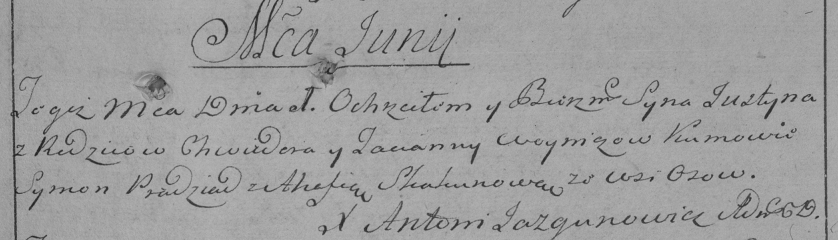 Mca Junij
Tegż Mca Dnia 1. Ochrzciłem y Bierzm Syna Justyna
z Rodziców Chwedora y Tacianny Woynizow Kumowie
Symon Pradziad z Ahafią Skakunową ze wsi Osow.
X Antoni Jazgunowicz